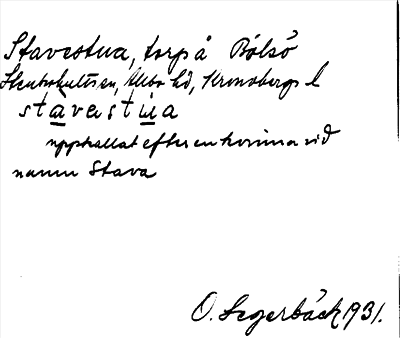 Stavestua, torp å Bölsö
Stenbrohults sn, Allbo hd, Kronobergs l
stavestua
upphallat efter en kvinna vid
namn Stava
O. Segerbäck 1931.